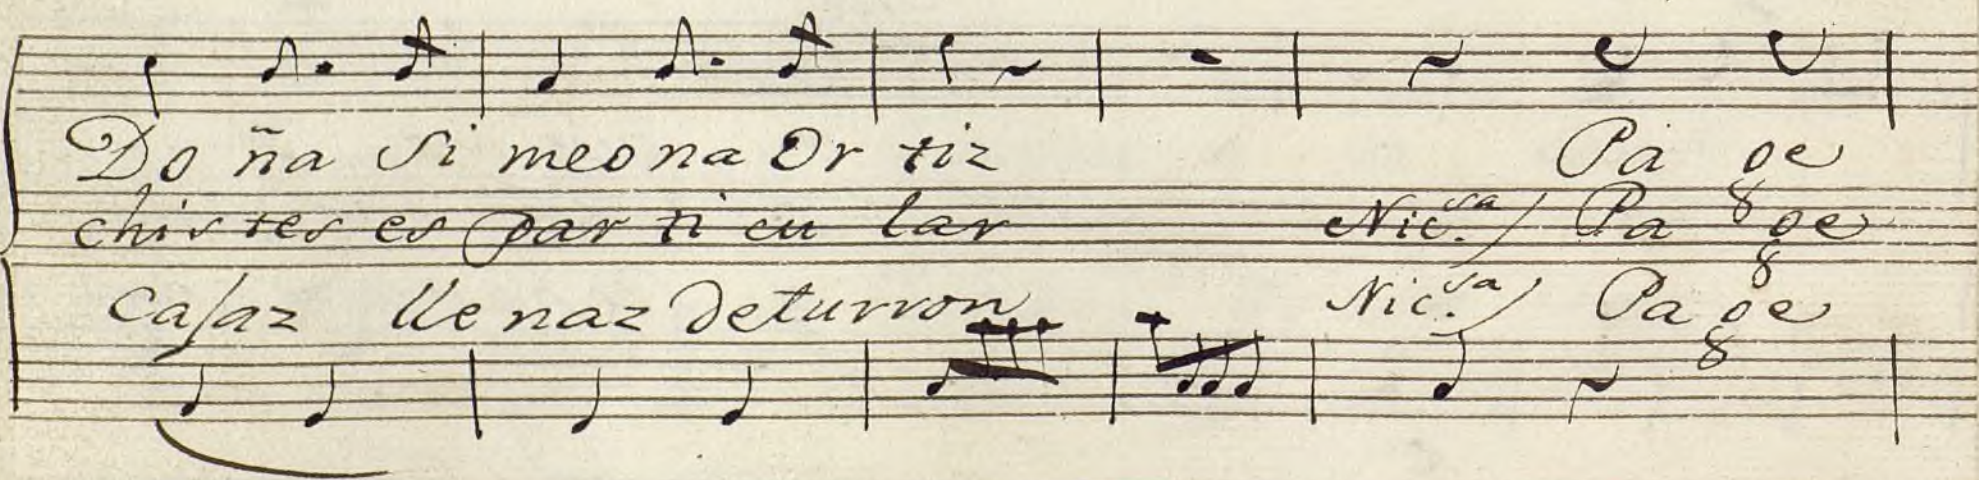 Do ña Si meona Or tiz Pa ge
chis tes es par ti cu lar Nic.sa / Pa ge
casaz lle naz de turron Nic.sa / Pa ge